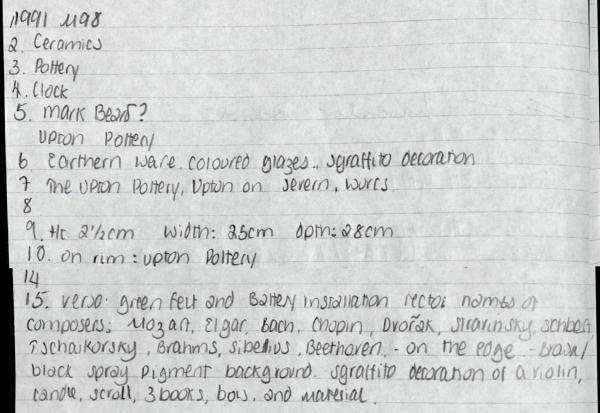 1991 M98
2. Ceramics
3. Pottery
4. Clock
5. Mark Beard?
Upton Pottery
6. Earthern ware. coloured glazes.. sgraffito decoration
7 The Upton Pottery, Upton on Severn, Worcs.
8
9. Ht: 2½cm width: 25cm dpth: 28cm
10. on rim: Upton Pottery
14
15. verso: green felt and Battery installation recto: names of
composers: Mozart, Elgar, Bach, Chopin, Dvořák, Stravinsky, Schbert,
Tschaikorsky, Brahms, Sibelius, Beethoven. - on the edge - brown/
black spray pigment background. sgraffito decoration of a violin,
candle, scroll, 3 books, bow, and material.